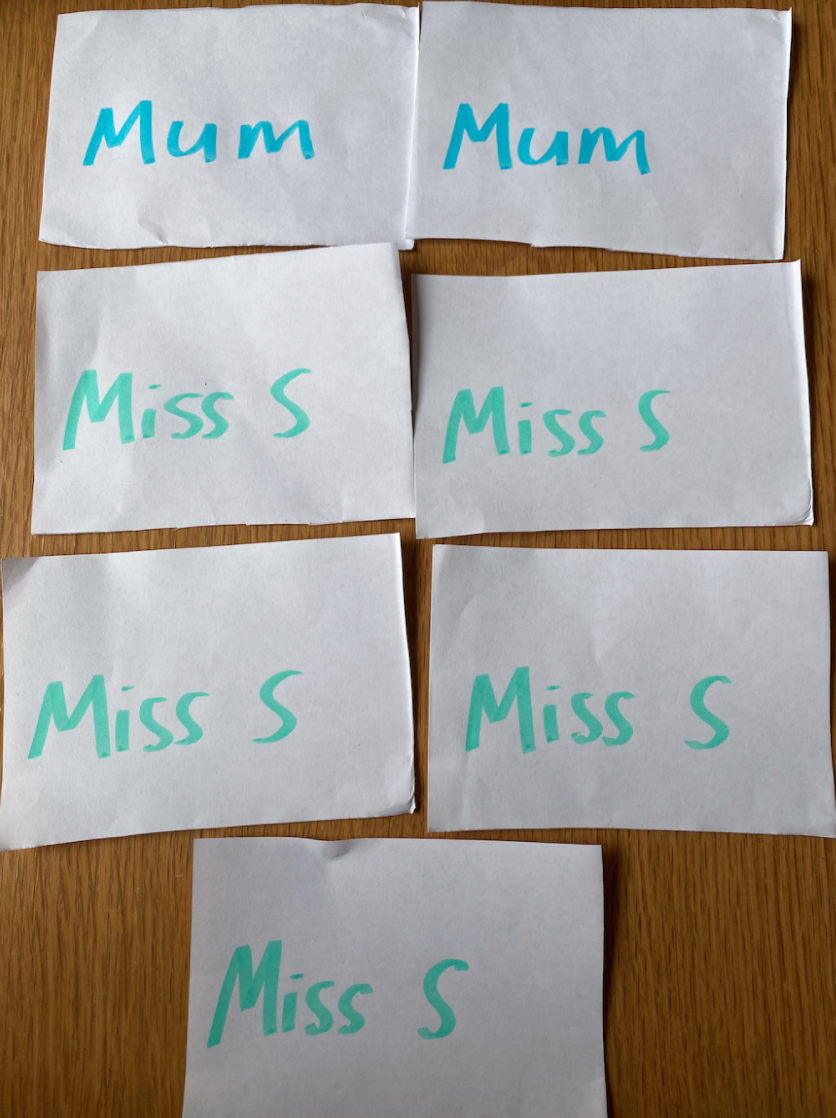 Mum
Mum
Miss S
Miss S
Miss S
Miss S
Miss S